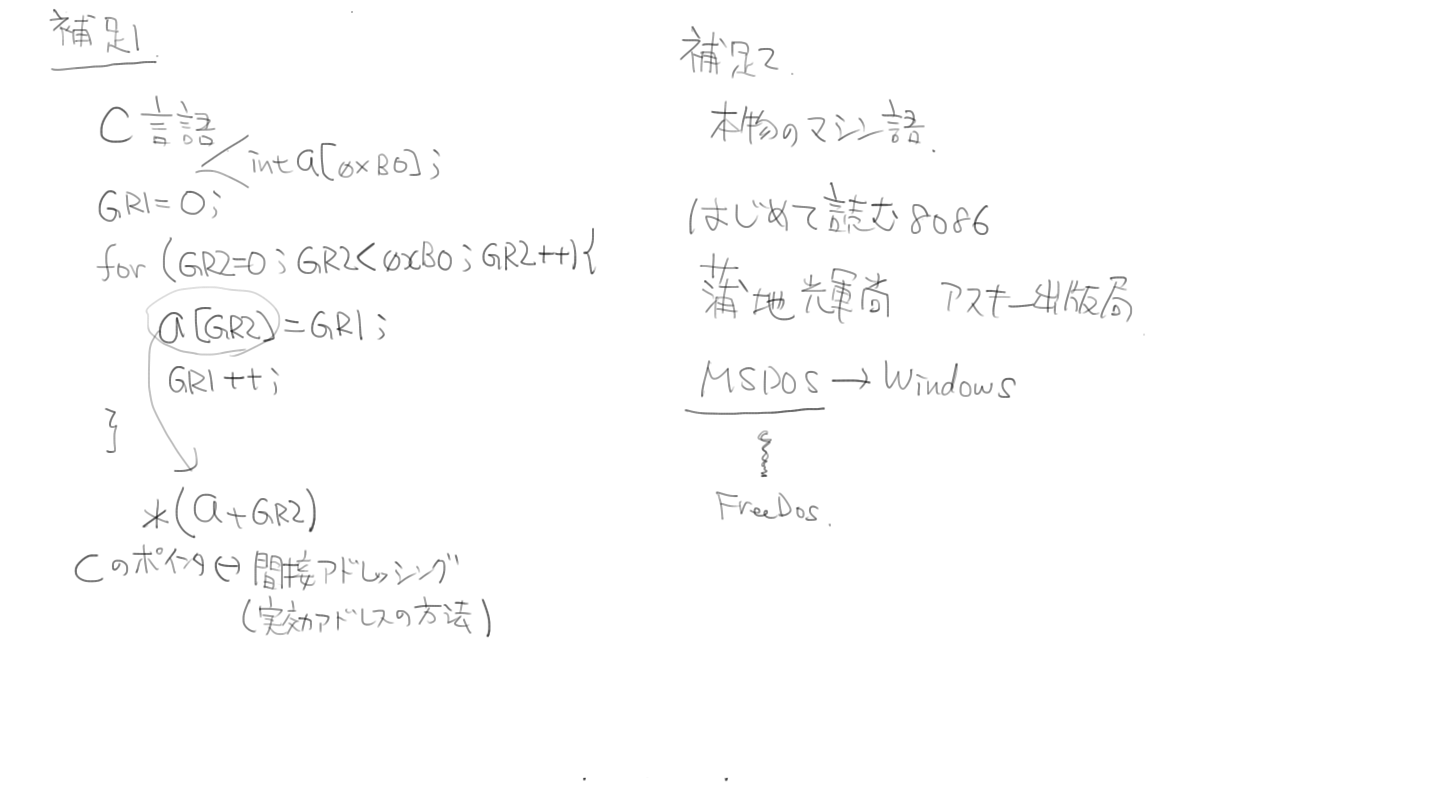 補足1.
C言語
int a[0xB0];
GR1=0;
for (GR2=0; GR2<0xB0; GR2++){
a[GR2]=GR1;
GR1++;
}
*(a+GR2)
Cのポインタ↔間接アドレッシング
(実効アドレスの方法)
補足2.
本物のマシン語.
はじめて読む8086
蒲地輝尚 アスキー出版局
MSDOS→Windows
FreeDos.